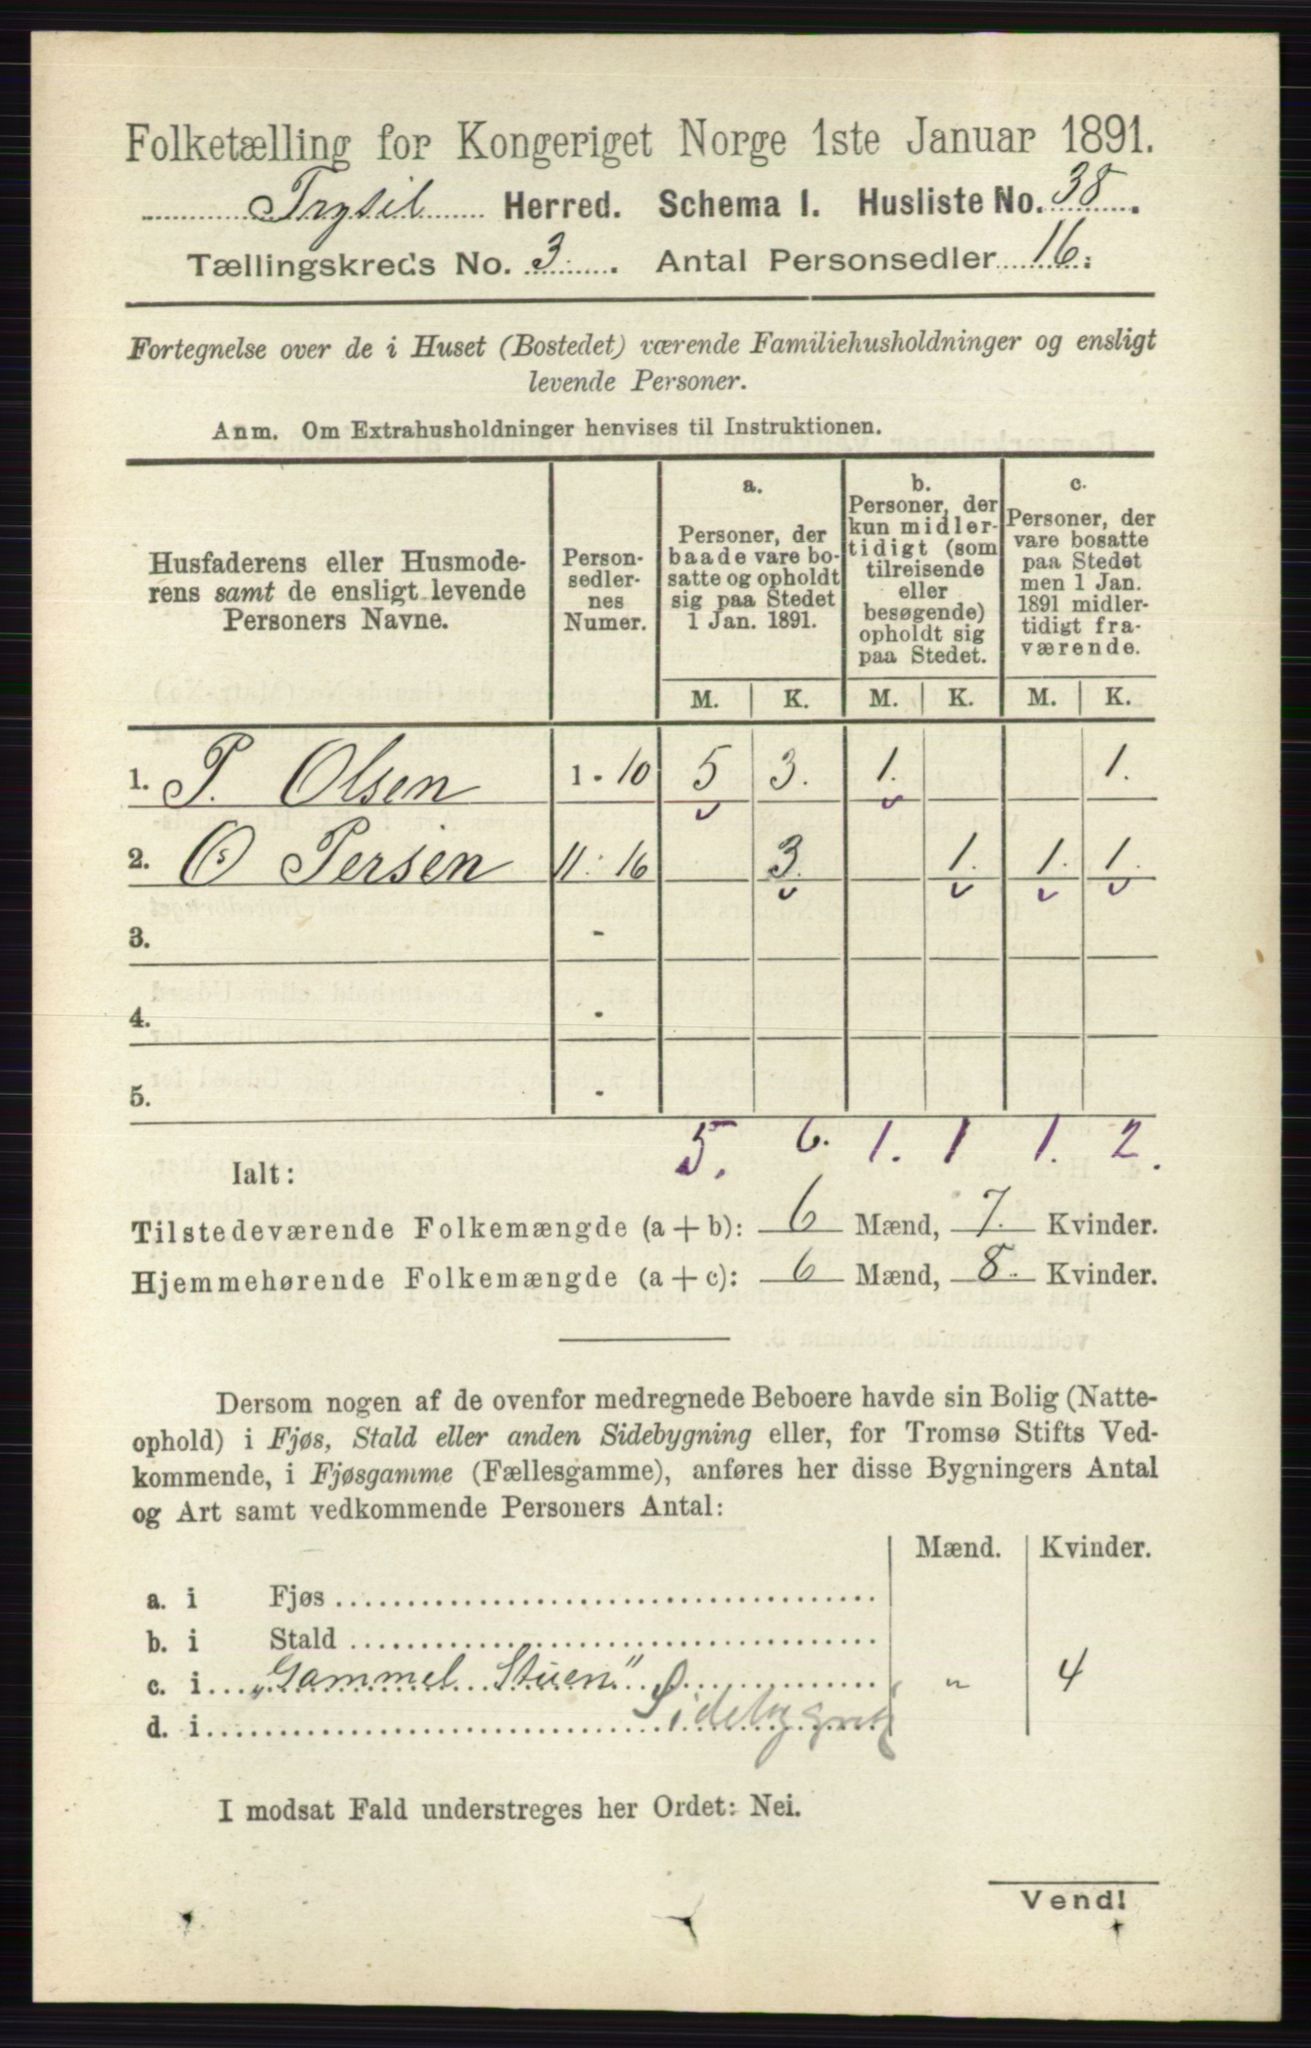 Folketælling for Kongeriget Norge 1ste Januar 1891.
Trysil Herred. Schema I. Husliste No. 38.
Tællingskreds No. 3. Antal Personsedler 16.
Fortegnelse over de i Huset (Bostedet) værende Familiehusholdninger og ensligt
levende Personer.
Anm. Om Extrahusholdninger henvises til Instruktionen.
Husfaderens eller Husmode-
rens samt de ensligt levende
Personers Navne.
Person-
sedler-
nes
Numer.
a.
Personer, der
baade vare bo-
satte og opholdt
sig paa Stedet
1 Jan. 1891.
b.
Personer, der
kun midler-
tidigt (som
tilreisende
eller
besøgende)
opholdt sig
paa Stedet.
c.
Personer, der
vare bosatte
paa Stedet
men 1 Jan.
1891 midler-
tidigt fra-
værende.
M. K. M. K. M. K.
1. P. Olsen 1 - 10 5 3. 1. 1.
2. O Persen 11 - 16 3. 1. 1. 1.
3. -
4. -
5. -
5. 6. 1. 1 1. 2.
Ialt:
Tilstedeværende Folkemængde (a + b): 6 Mænd, 7. Kvinder.
Hjemmehørende Folkemængde (a + c): 6 Mænd, 8. Kvinder.
Dersom nogen af de ovenfor medregnede Beboere havde sin Bolig (Natte-
ophold) i Fjøs, Stald eller anden Sidebygning eller, for Tromsø Stifts Ved-
kommende, i Fjøsgamme (Fællesgamme), anføres her disse Bygningers Antal
og Art samt vedkommende Personers Antal:
Mænd. Kvinder.
a. i Fjøs
b. i Stald
c. i „Gammel Stuen" „ 4
d. i Sidebygng
I modsat Fald understreges her Ordet: Nei.
Vend!